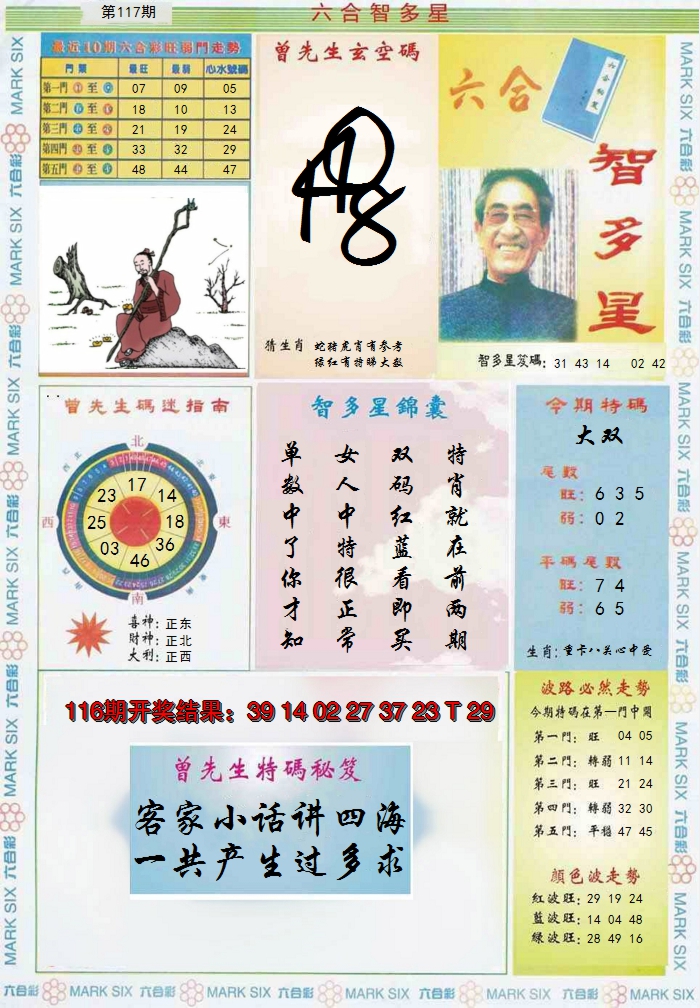 第117期
六合智多星
最近10期六合彩旺弱門走勢
門類 最旺 最弱 心水號碼
第一門 至 07 09 05
第二門 至 18 10 13
第三門 至 21 19 24
第四門 至 33 32 29
第五門 至 48 44 47
曾先生玄空碼
猜生肖 蛇猪虎肖有参考
绿红有特睇大数
六合
智多星
智多星笈碼: 31 43 14 02 42
曾先生碼迷指南
北
西
東
南
17
14
18
36
46
03
25
23
喜神: 正东
財神: 正北
大利: 正西
智多星錦囊
特肖就在前两期
双码红蓝看即买
女人中特很正常
单数中了你才知
今期特碼
大双
尾數
旺: 6 3 5
弱: 0 2
平碼尾數
旺: 7 4
弱: 6 5
生肖: 重卡八关心中爱
116期开奖结果: 39 14 02 27 37 23 T 29
曾先生特碼秘笈
客家小话讲四海
一共产生过多求
波路必然走勢
今期特碼在第一門中開
第一門: 旺 04 05
第二門: 轉弱 11 14
第三門: 旺 21 24
第四門: 轉弱 32 30
第五門: 平穩 47 45
顏色波走勢
紅波旺: 29 19 24
藍波旺: 14 04 48
綠波旺: 28 49 16
MARK SIX 六合彩